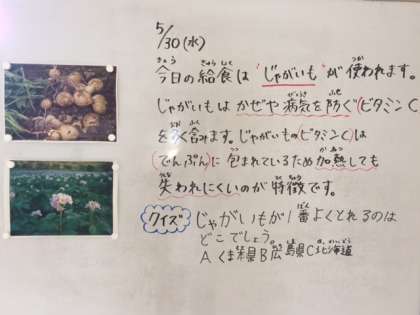 5/30(水)
今日の給食は"じゃがいも"が使われます。
じゃがいもは かぜや病気を防ぐ(ビタミンC)
を多く含みます。じゃがいもの(ビタミンC)は
(でんぷん)に包まれているため加熱しても
失われにくいのが特徴です。
クイズ じゃがいもが1番よくとれるのは
どこでしょう。
A くま本県 B 広島県 C 北海道